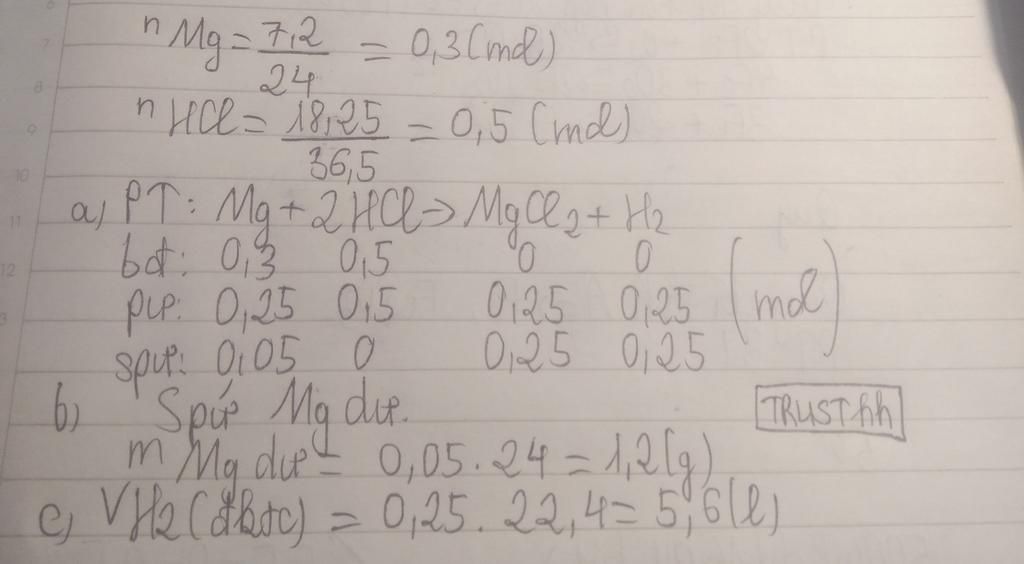 n Mg = 7,2 / 24 = 0,3 (mol)
n HCl = 18,25 / 36,5 = 0,5 (mol)
a) PT: Mg + 2HCl → MgCl2 + H2
bđ: 0,3 0,5 0 0
pư: 0,25 0,5 0,25 0,25 (mol)
spư: 0,05 0 0,25 0,25
b) Spứ Mg dư.
TRUSThh
m Mg dư = 0,05 . 24 = 1,2 (g)
c) VH2 (đktc) = 0,25 . 22,4 = 5,6 (l)